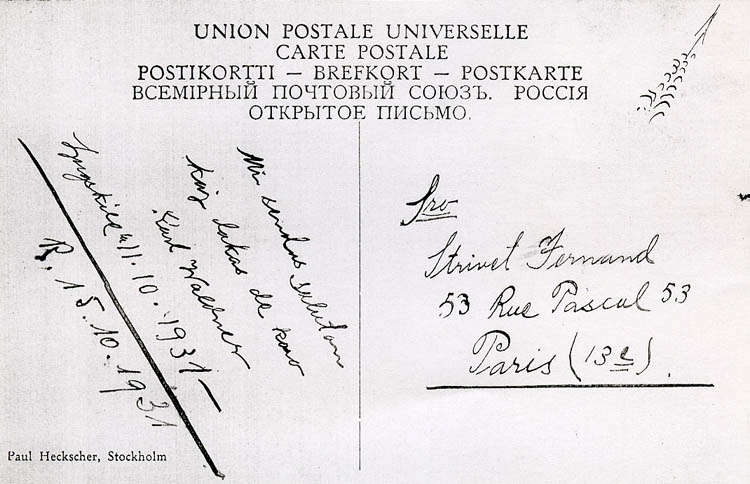 UNION POSTALE UNIVERSELLE
CARTE POSTALE
POSTIKORTTI — BREFKORT — POSTKARTE
ВСЕМІРНЫЙ ПОЧТОВЫЙ СОЮЗЪ. РОССІЯ
ОТКРЫТОЕ ПИСЬМО.
Mi sendas saluton
kaj de koro
Karl Waldner
11.10.1931—
R. 15.10.1931
Sro
Strivet Fernand
53 Rue Pascal 53
Paris (13e).
Paul Heckscher, Stockholm